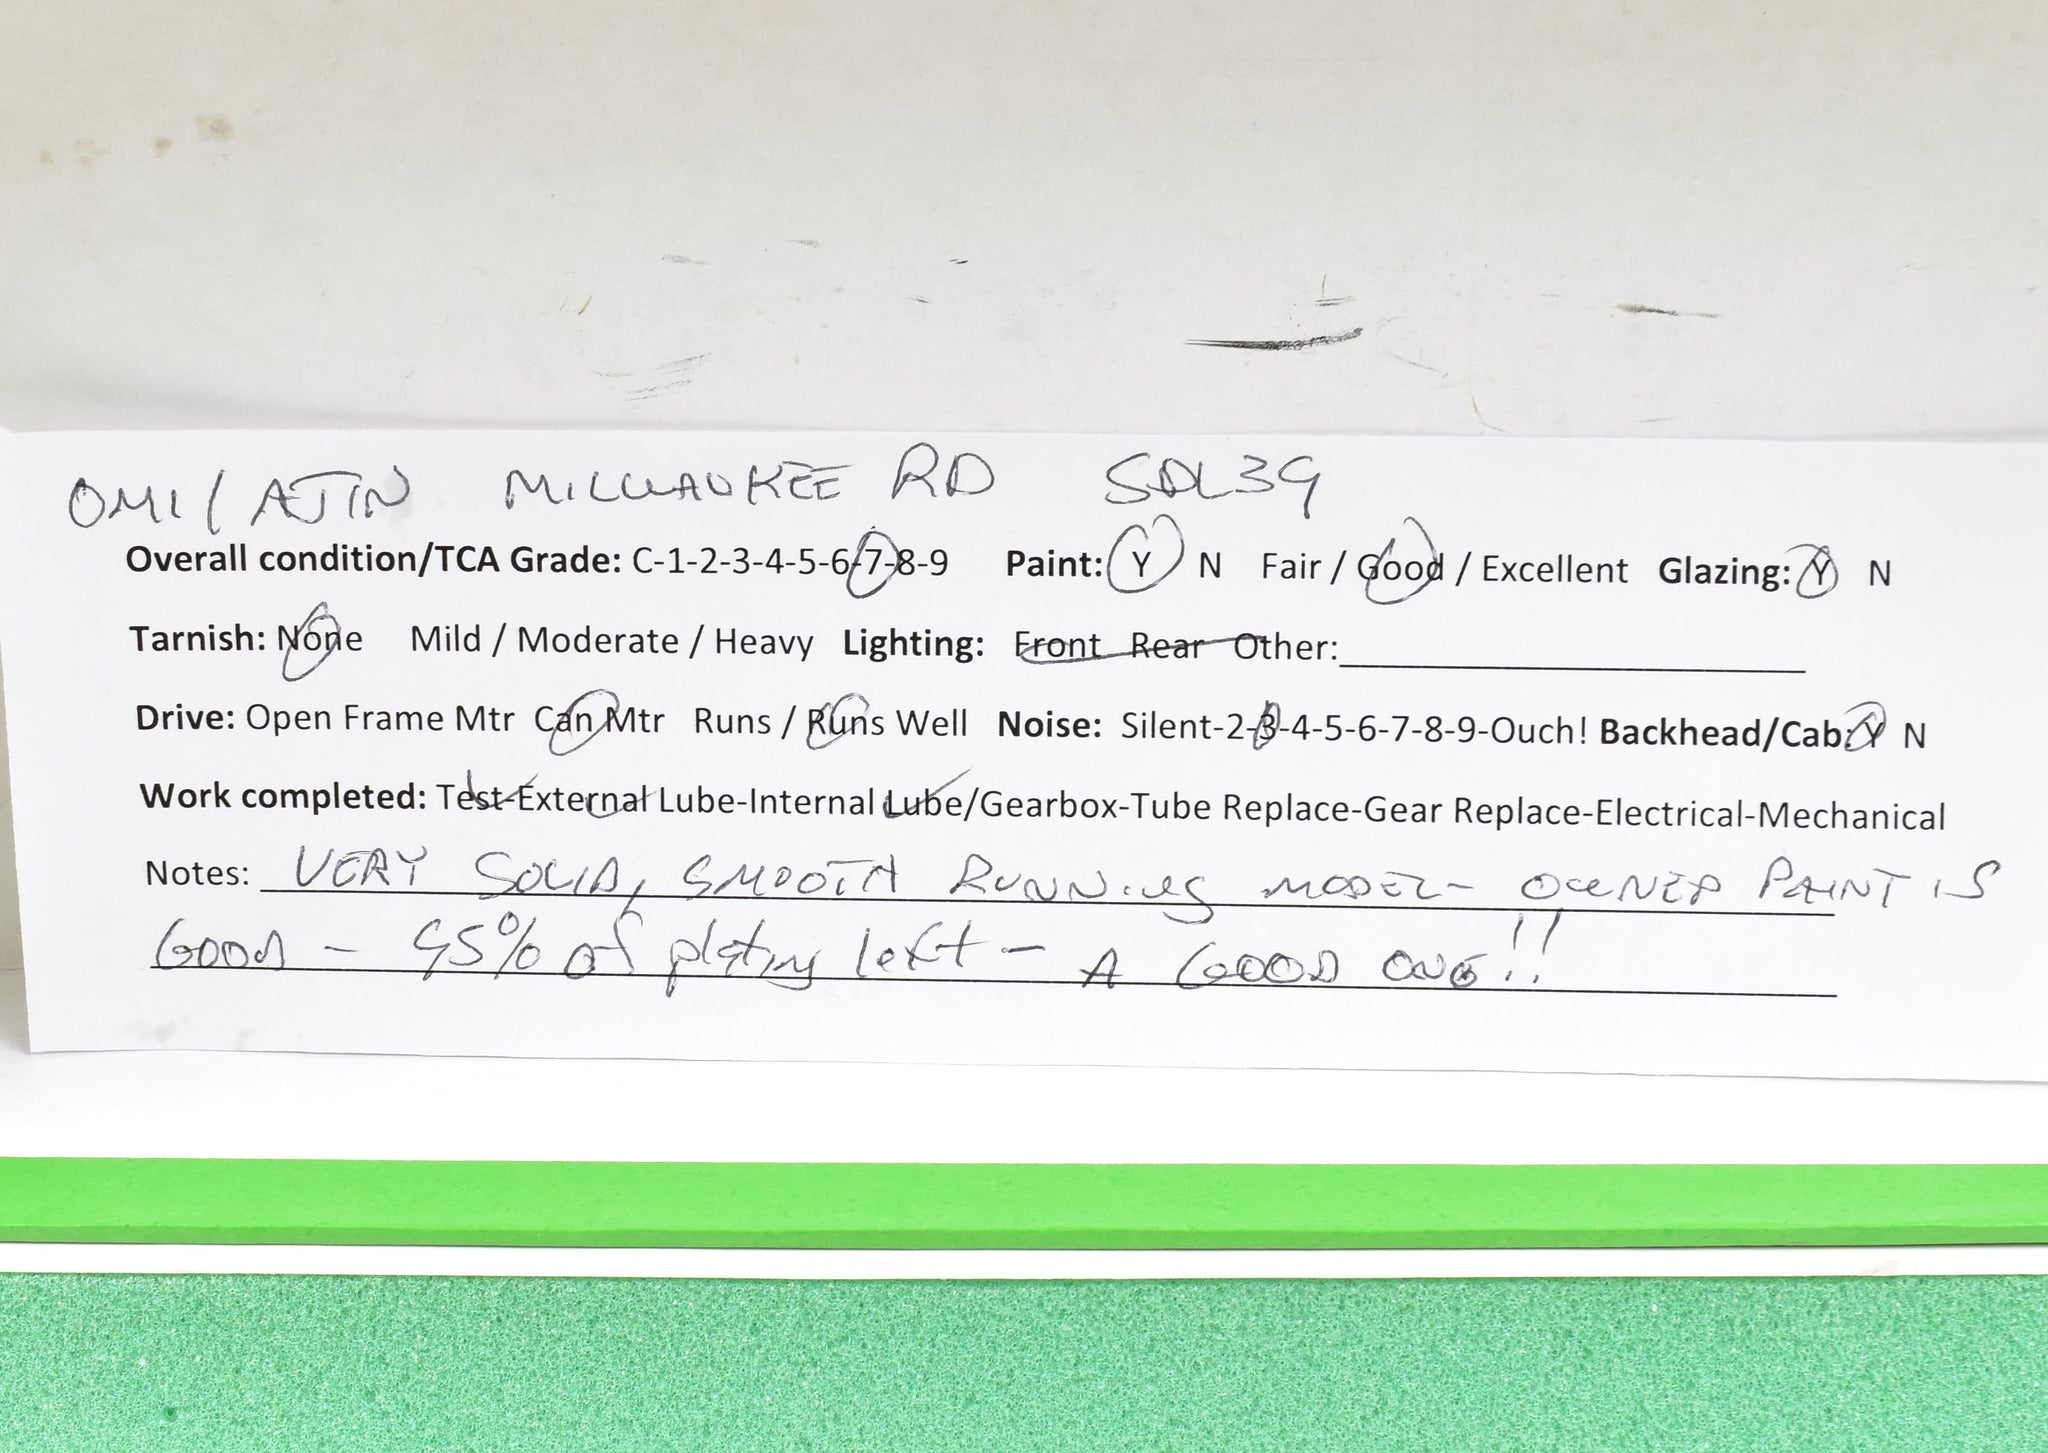 OMI/AJIN MILWAUKEE RD SDL39
Overall condition/TCA Grade: C-1-2-3-4-5-6-7-8-9 Paint: Y N Fair / Good / Excellent Glazing: Y N
Tarnish: None Mild / Moderate / Heavy Lighting: Front Rear Other:
Drive: Open Frame Mtr Can Mtr Runs / Runs Well Noise: Silent-2-3-4-5-6-7-8-9-Ouch! Backhead/Cab: Y N
Work completed: Test-External Lube-Internal Lube/Gearbox-Tube Replace-Gear Replace-Electrical-Mechanical
Notes: VERY SOLID, SMOOTH RUNNING MODEL - OWNER PAINT IS
GOOD - 95% of plating left - A GOOD ONE!!